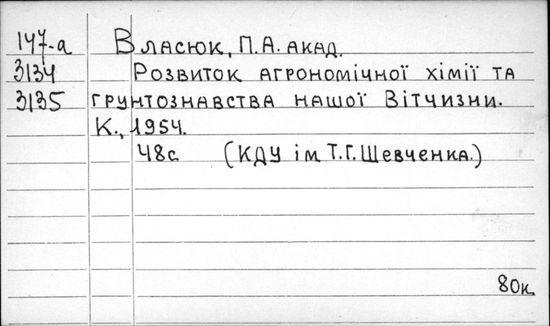 147-а Власюк, П.А. акад.
3134 Розвиток агрономічної хімії та
3135 грунтознавства нашої Вітчизни.
К., 1954.
48с (КДУ ім Т.Г. Шевченка.)
80к